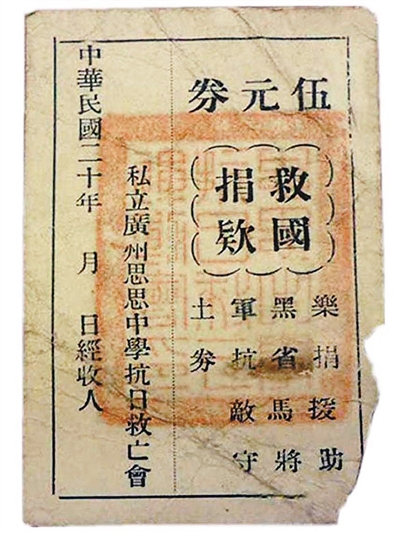 伍元券
救國
捐欵
樂捐援助
黑省馬將
軍抗敵守
土券
私立廣州思思中學抗日救亡會
中華民國二十年　月　日經收人